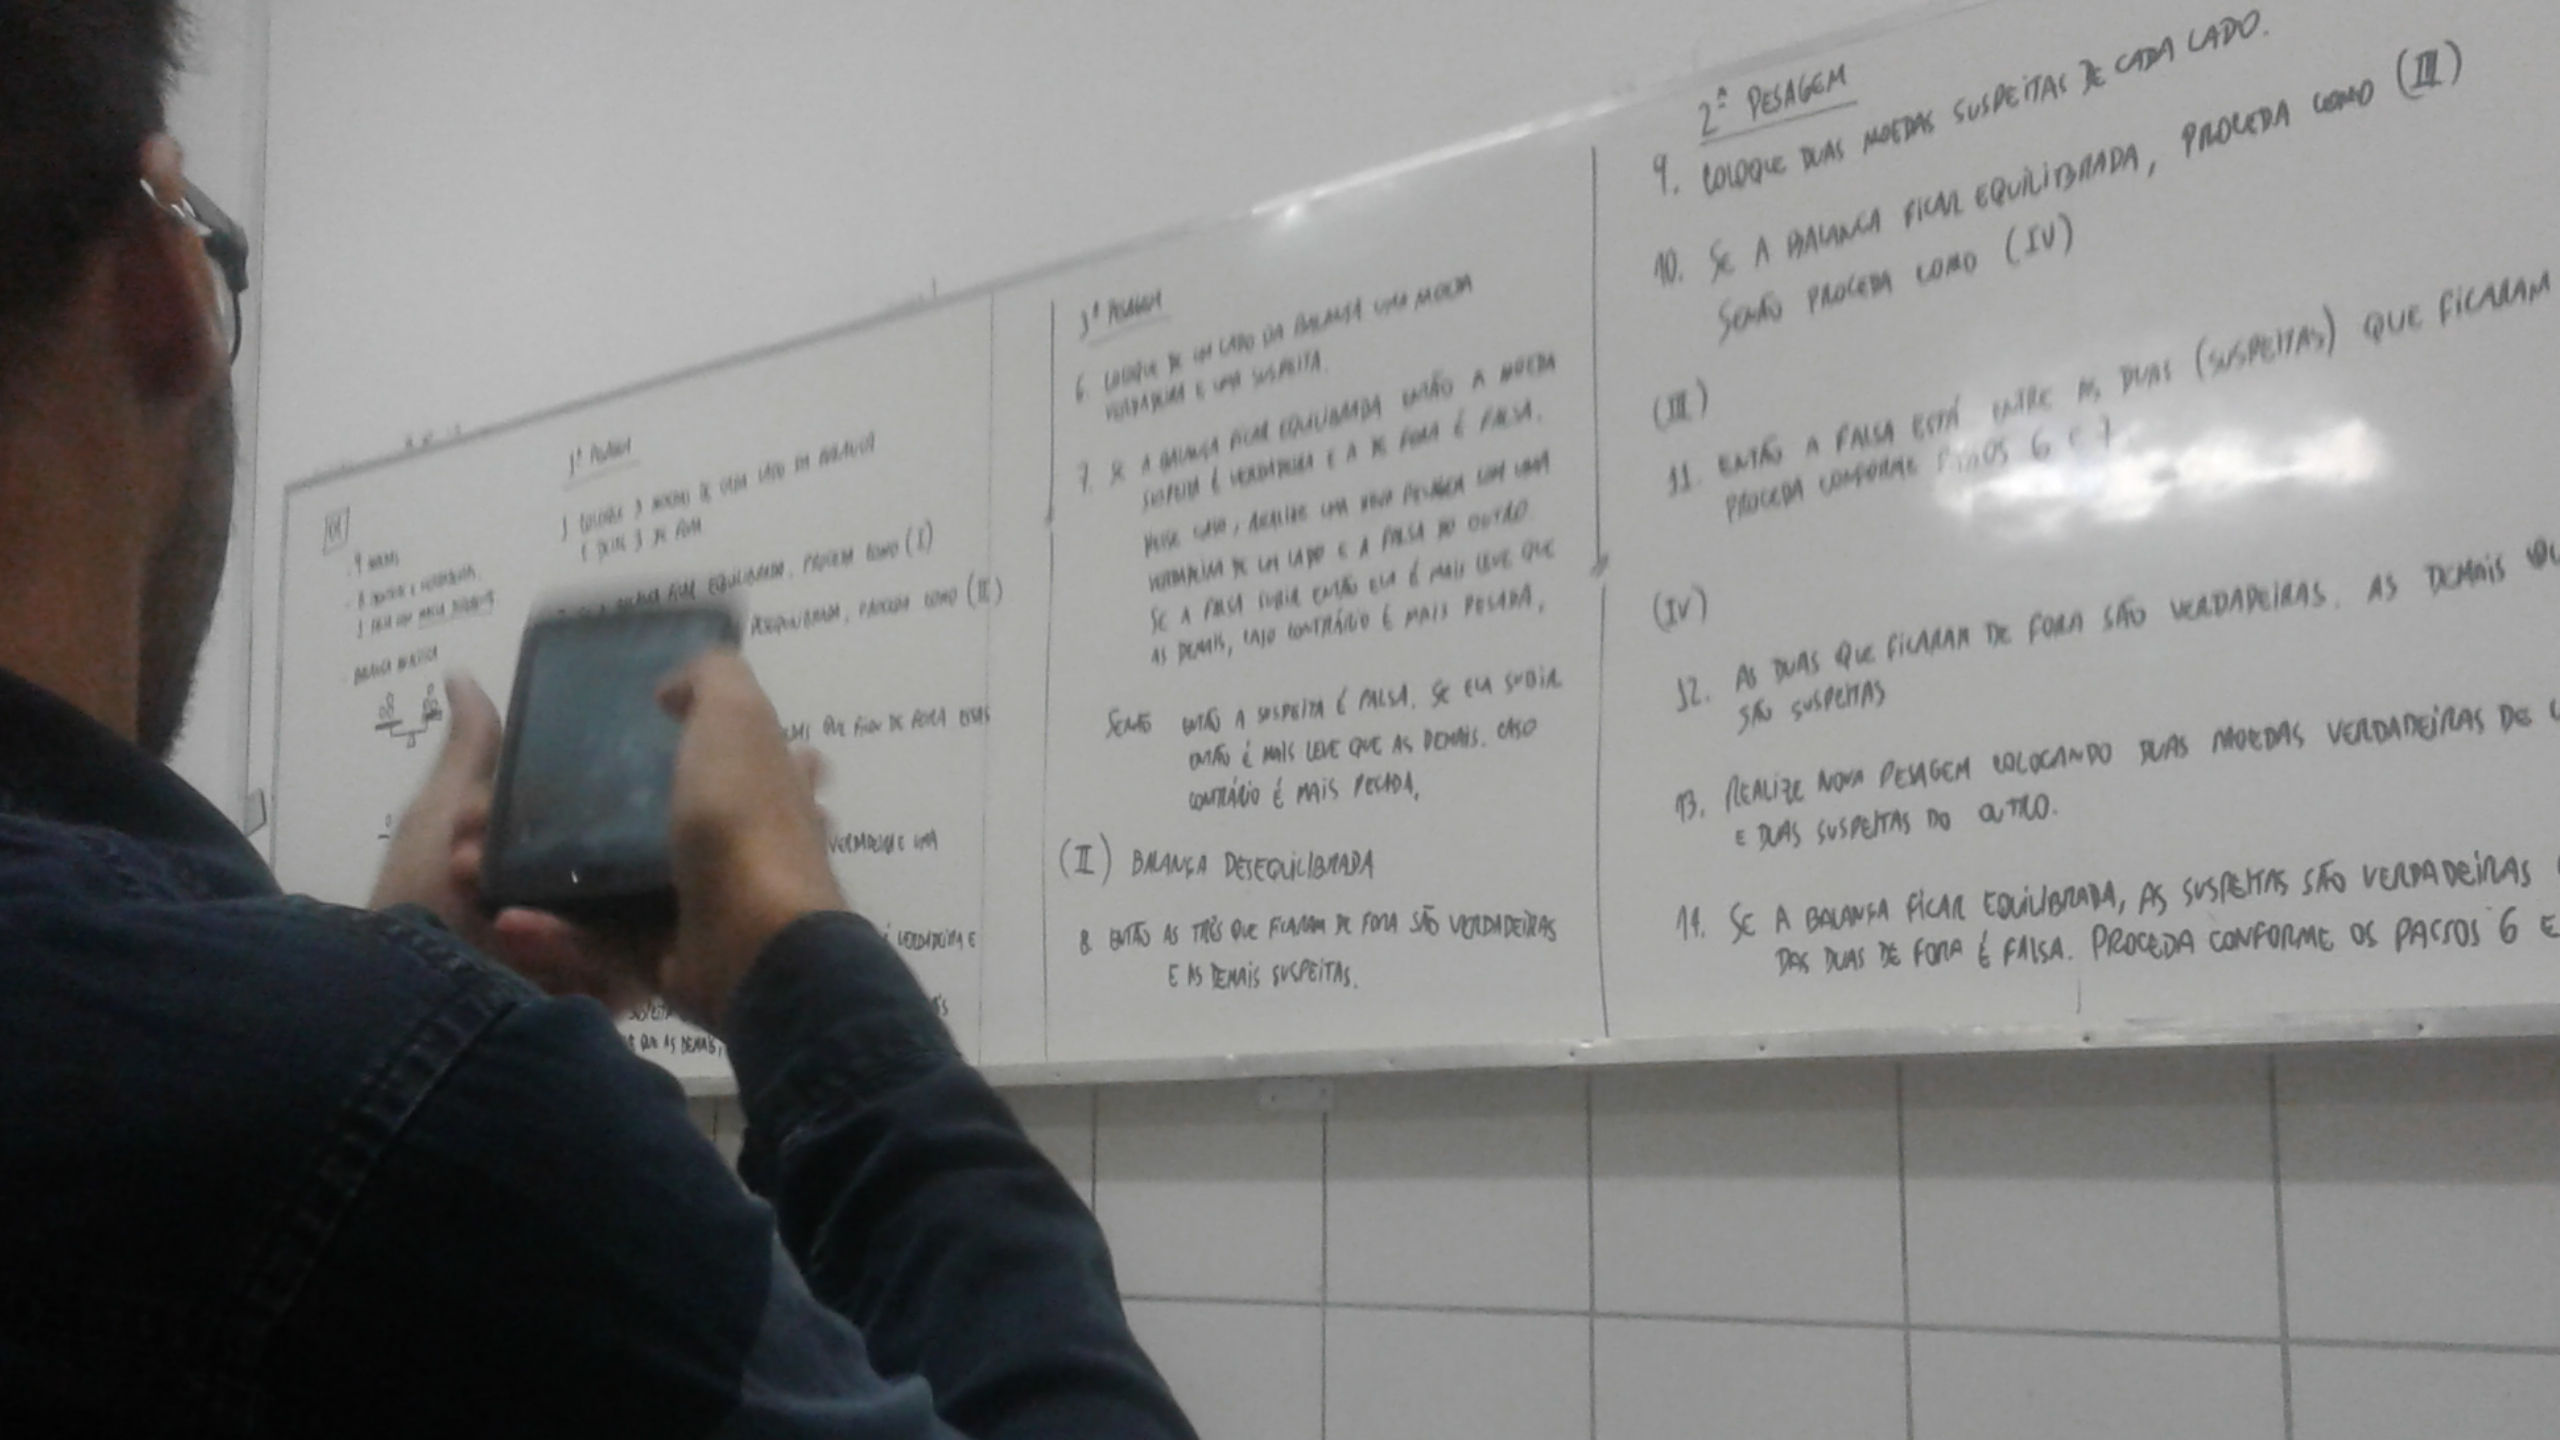 01
9 MOEDAS
BALANÇA ANALÍTICA
1ª PESAGEM
1 COLOQUE 3 MOEDAS DE CADA LADO DA BALANÇA
E DEIXE 3 DE FORA
FICAR EQUILIBRADA, PROCEDA COMO (I)
DESEQUILIBRADA, PROCEDA COMO (II)
QUE FICAM DE FORA ESSAS
VERDADEIRA E UMA
É VERDADEIRA E
SUSPEITA
QUE AS DEMAIS,
3ª PESAGEM
6. COLOQUE DE UM LADO DA BALANÇA UMA MOEDA
VERDADEIRA E UMA SUSPEITA.
7. SE A BALANÇA FICAR EQUILIBRADA ENTÃO A MOEDA
SUSPEITA É VERDADEIRA E A DE FORA É FALSA.
NESSE CASO, REALIZE UMA NOVA PESAGEM COM UMA
VERDADEIRA DE UM LADO E A FALSA DO OUTRO.
SE A FALSA SUBIR ENTÃO ELA É MAIS LEVE QUE
AS DEMAIS, CASO CONTRÁRIO É MAIS PESADA,
SENÃO ENTÃO A SUSPEITA É FALSA. SE ELA SUBIR
ENTÃO É MAIS LEVE QUE AS DEMAIS. CASO
CONTRÁRIO É MAIS PESADA,
(II) BALANÇA DESEQUILIBRADA
8. ENTÃO AS TRÊS QUE FICARAM DE FORA SÃO VERDADEIRAS
E AS DEMAIS SUSPEITAS.
2ª PESAGEM
9. COLOQUE DUAS MOEDAS SUSPEITAS DE CADA LADO.
10. SE A BALANÇA FICAR EQUILIBRADA, PROCEDA COMO (III)
SENÃO PROCEDA COMO (IV)
(III)
11. ENTÃO A FALSA ESTÁ ENTRE AS DUAS (SUSPEITAS) QUE FICARAM
PROCEDA CONFORME PASSOS 6 E 7
(IV)
12. AS DUAS QUE FICARAM DE FORA SÃO VERDADEIRAS. AS DEMAIS
SÃO SUSPEITAS
13. REALIZE NOVA PESAGEM COLOCANDO DUAS MOEDAS VERDADEIRAS DE
E DUAS SUSPEITAS DO OUTRO.
14. SE A BALANÇA FICAR EQUILIBRADA, AS SUSPEITAS SÃO VERDADEIRAS
DAS DUAS DE FORA É FALSA. PROCEDA CONFORME OS PASSOS 6 E